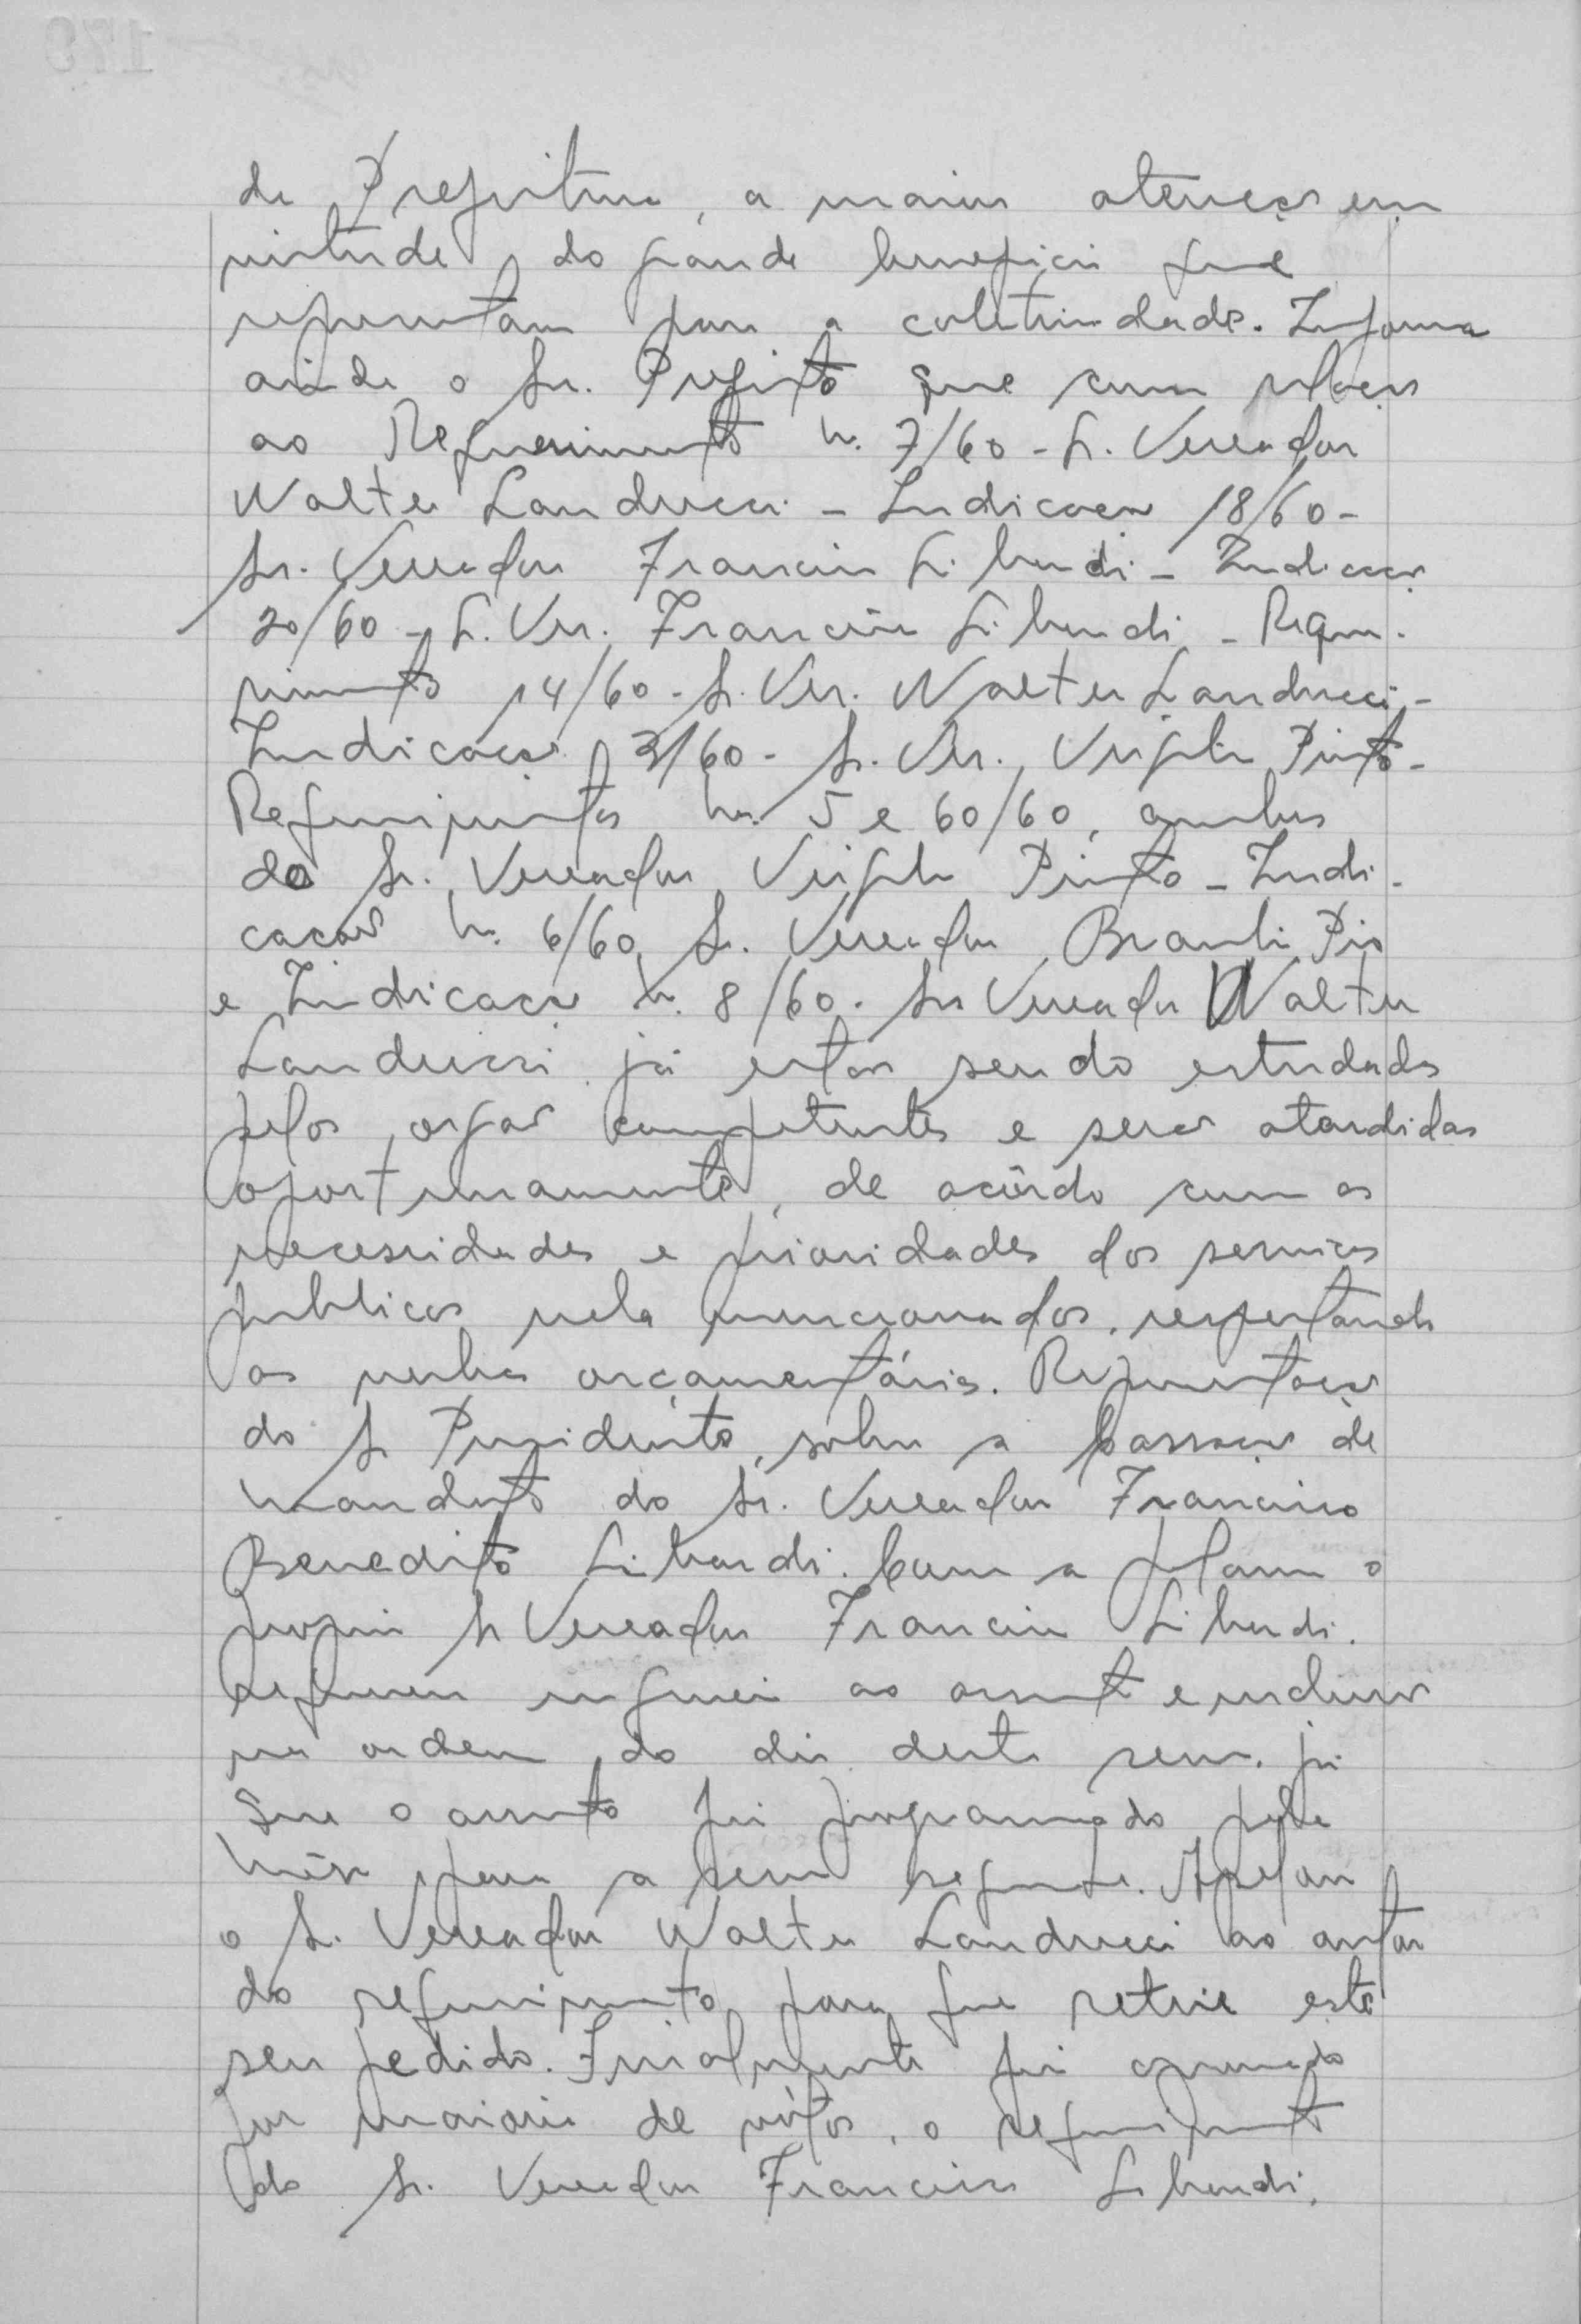 da Prefeitura, a maior atenção em
virtude do grande beneficio que
representam para a coletividade. Informa
ainda o Sr. Prefeito que com relação
ao Requerimento n. 7/60 - Sr. Vereador
Walter Landucci - Indicação 18/60 -
Sr. Vereador Francisco Libardi - Indicação
20/60 - Sr. Ver. Francisco Libardi - Reque-
rimento 14/60 - Sr. Ver. Walter Landucci -
Indicação 3/60 - Sr. Ver. Virgilio Pinto -
Requerimentos ns. 5 e 60/60, ambos
do Sr. Vereador Virgilio Pinto - Indi-
cação n. 6/60 Sr. Vereador Braulio Pio
e Indicação n. 8/60 - Sr Vereador Walter
Landucci já estão sendo estudados
pelos orgãos competentes e serão atendidos
oportunamente, de acôrdo com as
necessidades e prioridades dos serviços
publicos nela mencionados, respeitando
as verbas orçamentárias. Representação
do Sr Presidente, sobre a cassação de
mandato do Sr. Vereador Francisco
Benedito Libardi. Com a palavra o
proprio Sr Vereador Francisco Libardi.
requereu urgencia ao assunto e inclusão
na ordem do dia desta sessão, já
que o assunto foi programado pela
Mêsa para a sessão seguinte. Apelou
o Sr. Vereador Walter Landucci ao autor
do requerimento para que retire este
seu pedido. Finalmente foi aprovado
por maioria de vótos, o requerimento
do Sr. Vereador Francisco Libardi.